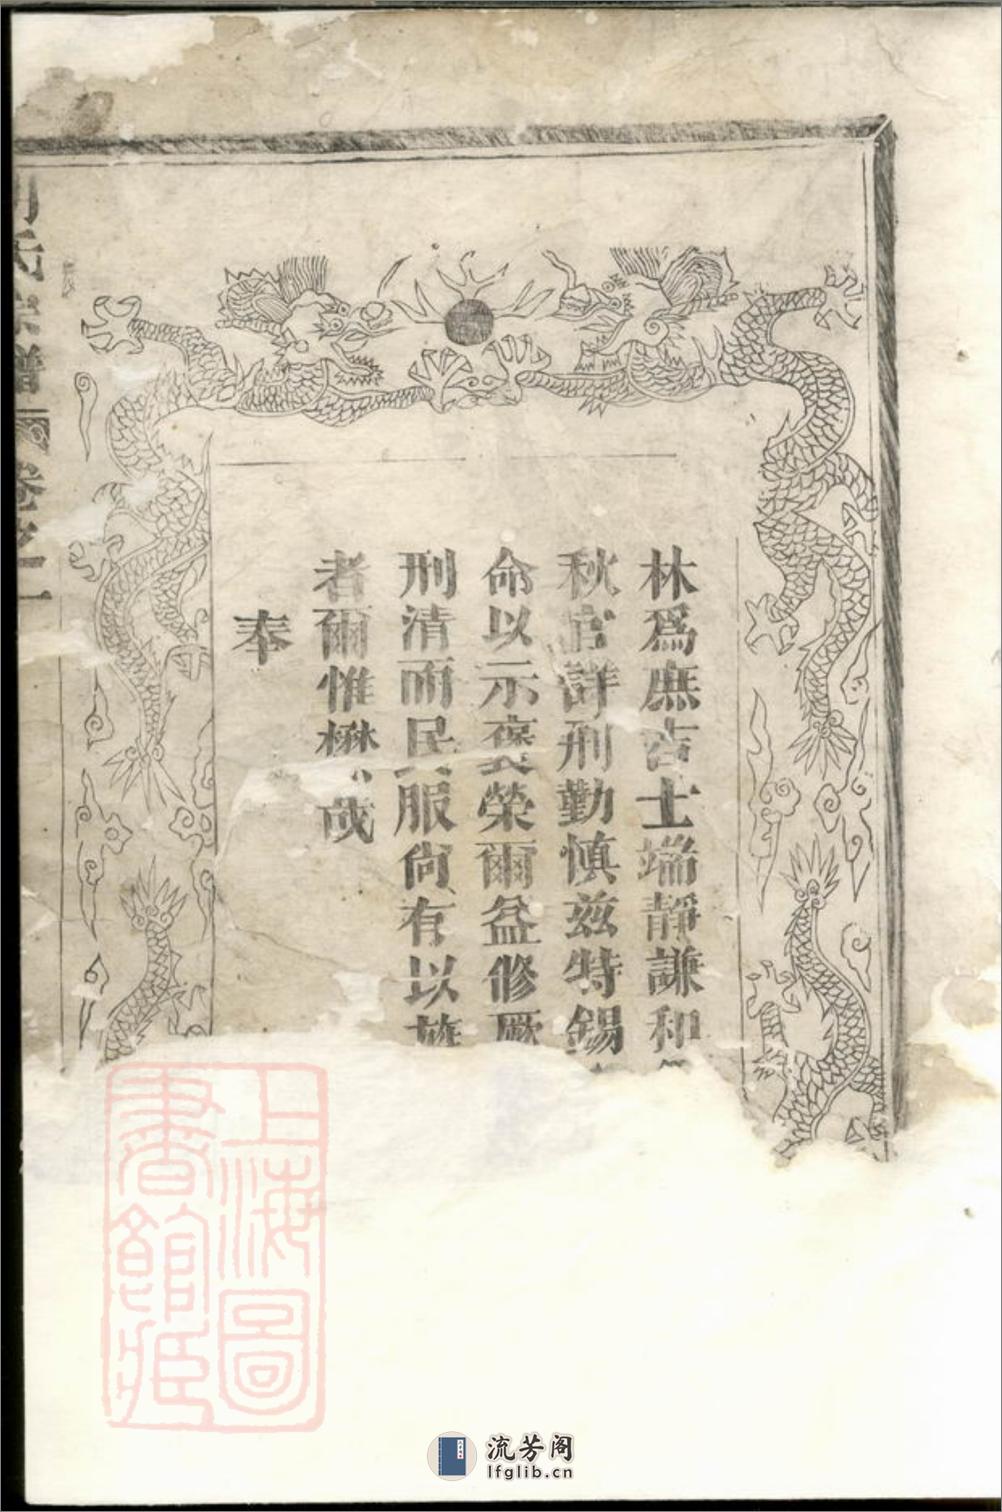 林爲庶吉士端靜謙和
秋官詳刑勤慎兹特錫
命以示褒榮爾益修厥
刑清而民服尚有以旌
者爾惟懋哉
奉
氏宗譜
卷之一
上海圖
書館藏
流芳阁
lfglib.cn